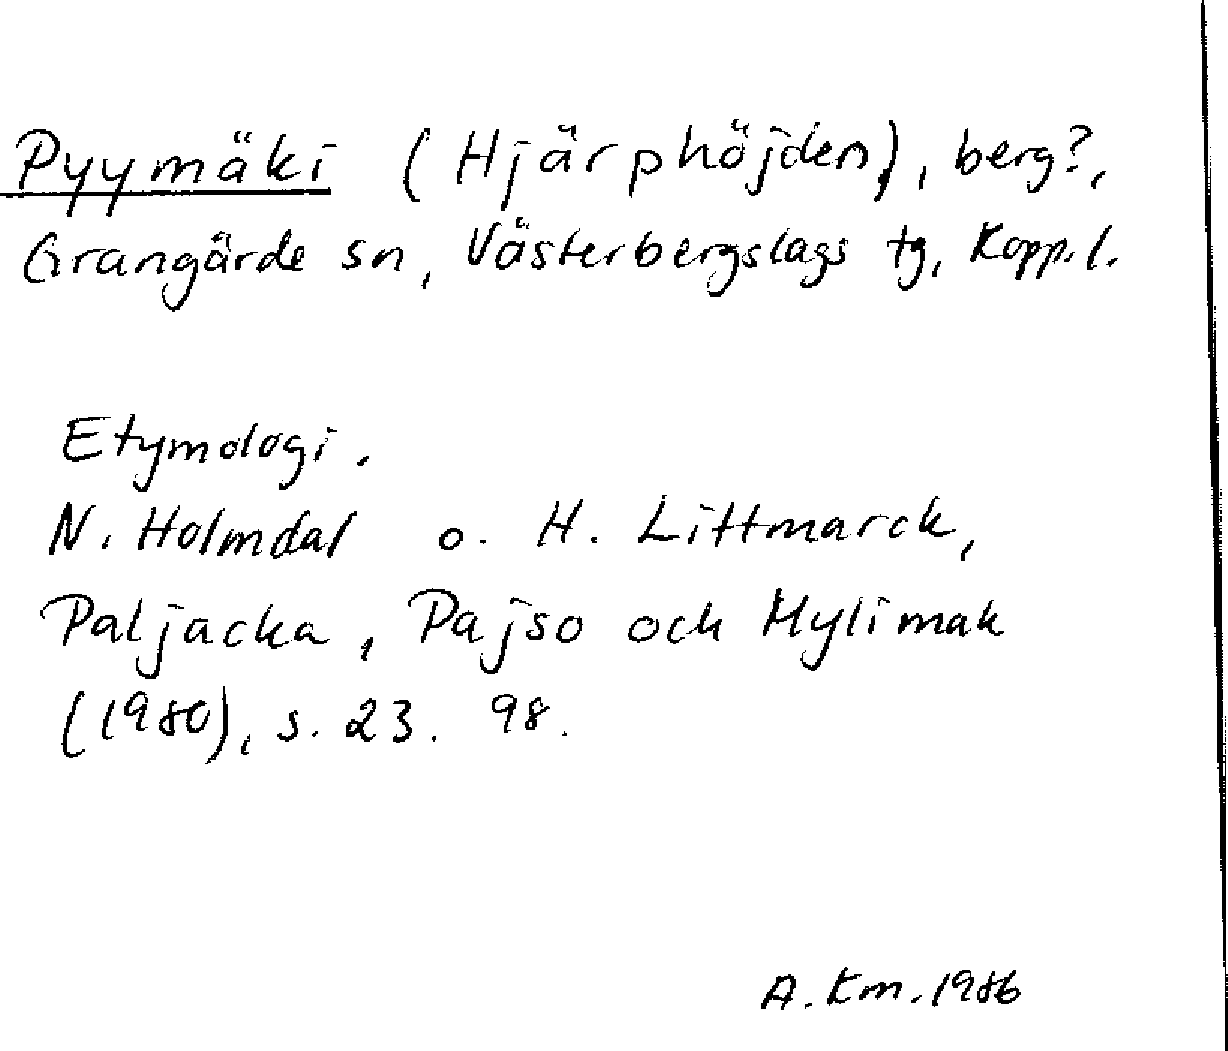 Pyymäki (Hjärphöjden), berg?,
Grangärde sn, Västerbergslags tg, Kopp.l.
Etymologi.
N. Holmdal o. H. Littmarck,
Paljacka, Pajso och Mylimak
(1980), s. 23. 98.
A. Km. 1986